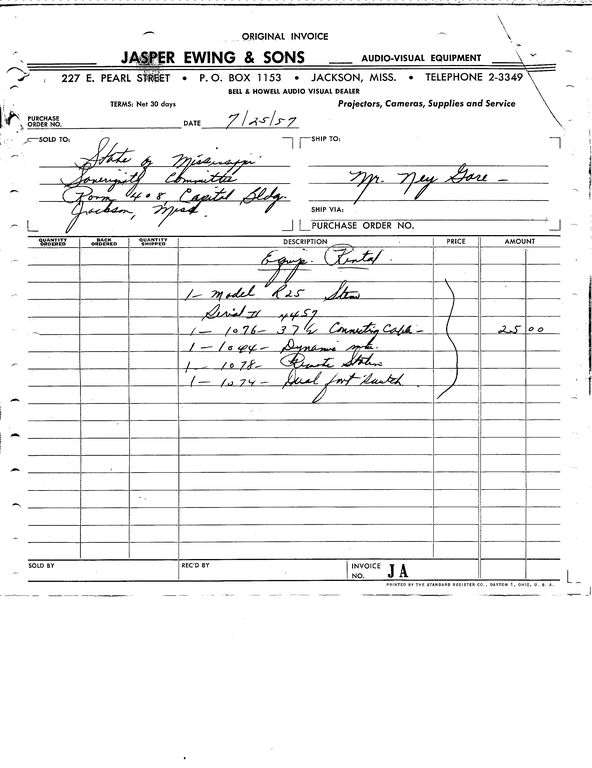 ORIGINAL INVOICE
JASPER EWING & SONS AUDIO-VISUAL EQUIPMENT
227 E. PEARL STREET • P. O. BOX 1153 • JACKSON, MISS. • TELEPHONE 2-3349
BELL & HOWELL AUDIO VISUAL DEALER
TERMS: Net 30 days Projectors, Cameras, Supplies and Service
PURCHASE ORDER NO. DATE 7/25/57
SOLD TO: SHIP TO:
State of Mississippi
Soverignity Committee
Mr. Ney Gore -
Room 408 Capital Bldg.
Jackson, Miss.
SHIP VIA:
PURCHASE ORDER NO.
QUANTITY ORDERED BACK ORDERED QUANTITY SHIPPED DESCRIPTION PRICE AMOUNT
Equip. Rental
1 - Model R25 Steno
Serial # 4457
1 - 1076 - 37 1/2 Connecting Cable - 25 00
1 - 1044 - Dynamic mike
1 - 1078 - Remote Station
1 - 1074 - Dual foot Switch
SOLD BY REC'D BY INVOICE NO. JA
PRINTED BY THE STANDARD REGISTER CO., DAYTON 1, OHIO, U. S. A.